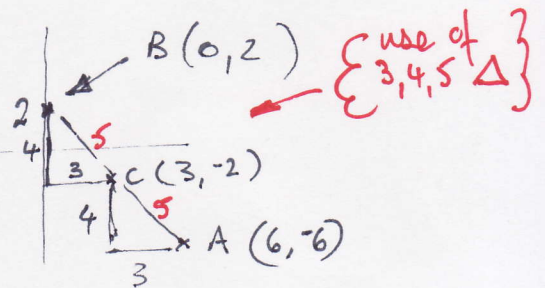 B (0, 2)
{ use of
3, 4, 5 Δ }
2
4
5
3
C (3, -2)
4
5
A (6, -6)
3